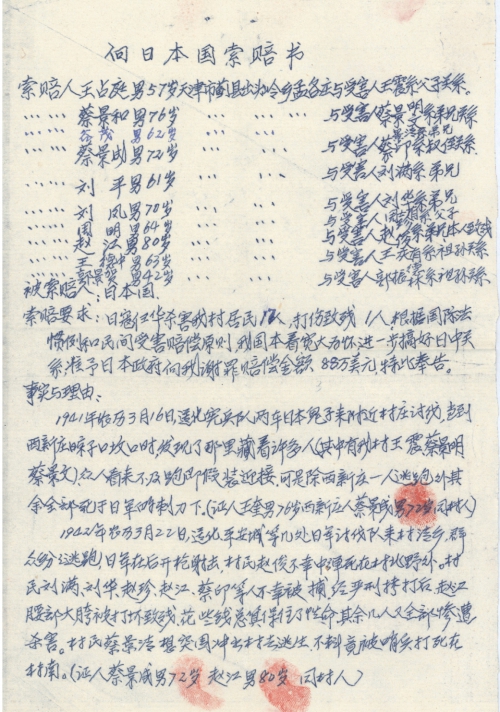 向日本国索赔书
索赔人王占庭男57岁天津市蓟县出头岭乡孟各庄与受害人王震系父子关系。
〃〃〃 蔡景和男76岁 〃〃 〃〃 〃〃 与受害人蔡景明系弟兄关系
〃〃〃 男62岁 景浩系弟兄
〃〃〃 蔡景成男72岁 〃〃 〃〃 与受害人蔡印系叔侄关系
〃〃〃 刘平男61岁 〃〃 〃〃 与受害人刘满系弟兄
〃〃〃 刘凤男70岁 〃〃 〃〃 与受害人刘华系弟兄
〃〃〃 周明男64岁 〃〃 〃〃 与受害人系父子
〃〃〃 赵江男80岁 〃〃 〃〃 与受害人赵俊系弟兄本人致残
〃〃〃 王 男63岁 〃〃 〃〃 与受害人王 系祖孙关系
〃〃〃 郭景 男42岁 〃〃 〃〃 与受害人郭振 系祖孙关系
被索赔人：日本国.
索赔要求：日寇侵华杀害我村居民 人，打伤致残1人，根据国际法
惯例和民间受害赔偿原则，我国本着宽大为怀进一步搞好日中关
系准予日本政府向我谢罪赔偿金额88万美元，特此奉告。
事实与理由：
1941年농历3月16日遵化宪兵队两车日本鬼子来附近村庄讨伐，当到
西新庄 子口坎口时发现了那里藏着许多人（其中有我村王震蔡景明
蔡景文）众人看来不及跑即假装迎接，可是除西新庄一人逃跑外其
余全部死于日军的刺刀下。（证人王奎男76岁西新庄人蔡景成男72岁同村人）
1942年农历3月22日，遵化平安城等几处日军讨伐队来村治乡，群
众纷纷逃跑，日军在后开枪射击，村民赵俊不幸中弹死在村北野外。村
民刘满、刘华、赵珍、赵江、蔡印等人不幸被捕，经严刑拷打后，赵江
腰部大胯被打坏致残，花些钱总算保住了性命，其余几人又全部惨遭
杀害。村民蔡景浩想突围冲出村去逃生，不料竟被哨兵打死在
村南。（证人蔡景成男72岁 赵江男80岁 同村人）